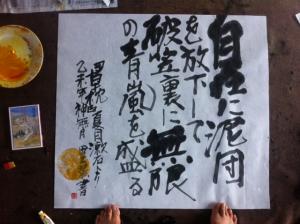 自在に泥団
を放下して
破笠裏に無限
の青嵐を盛る
草枕 夏目漱石より
乙未年神無月
書